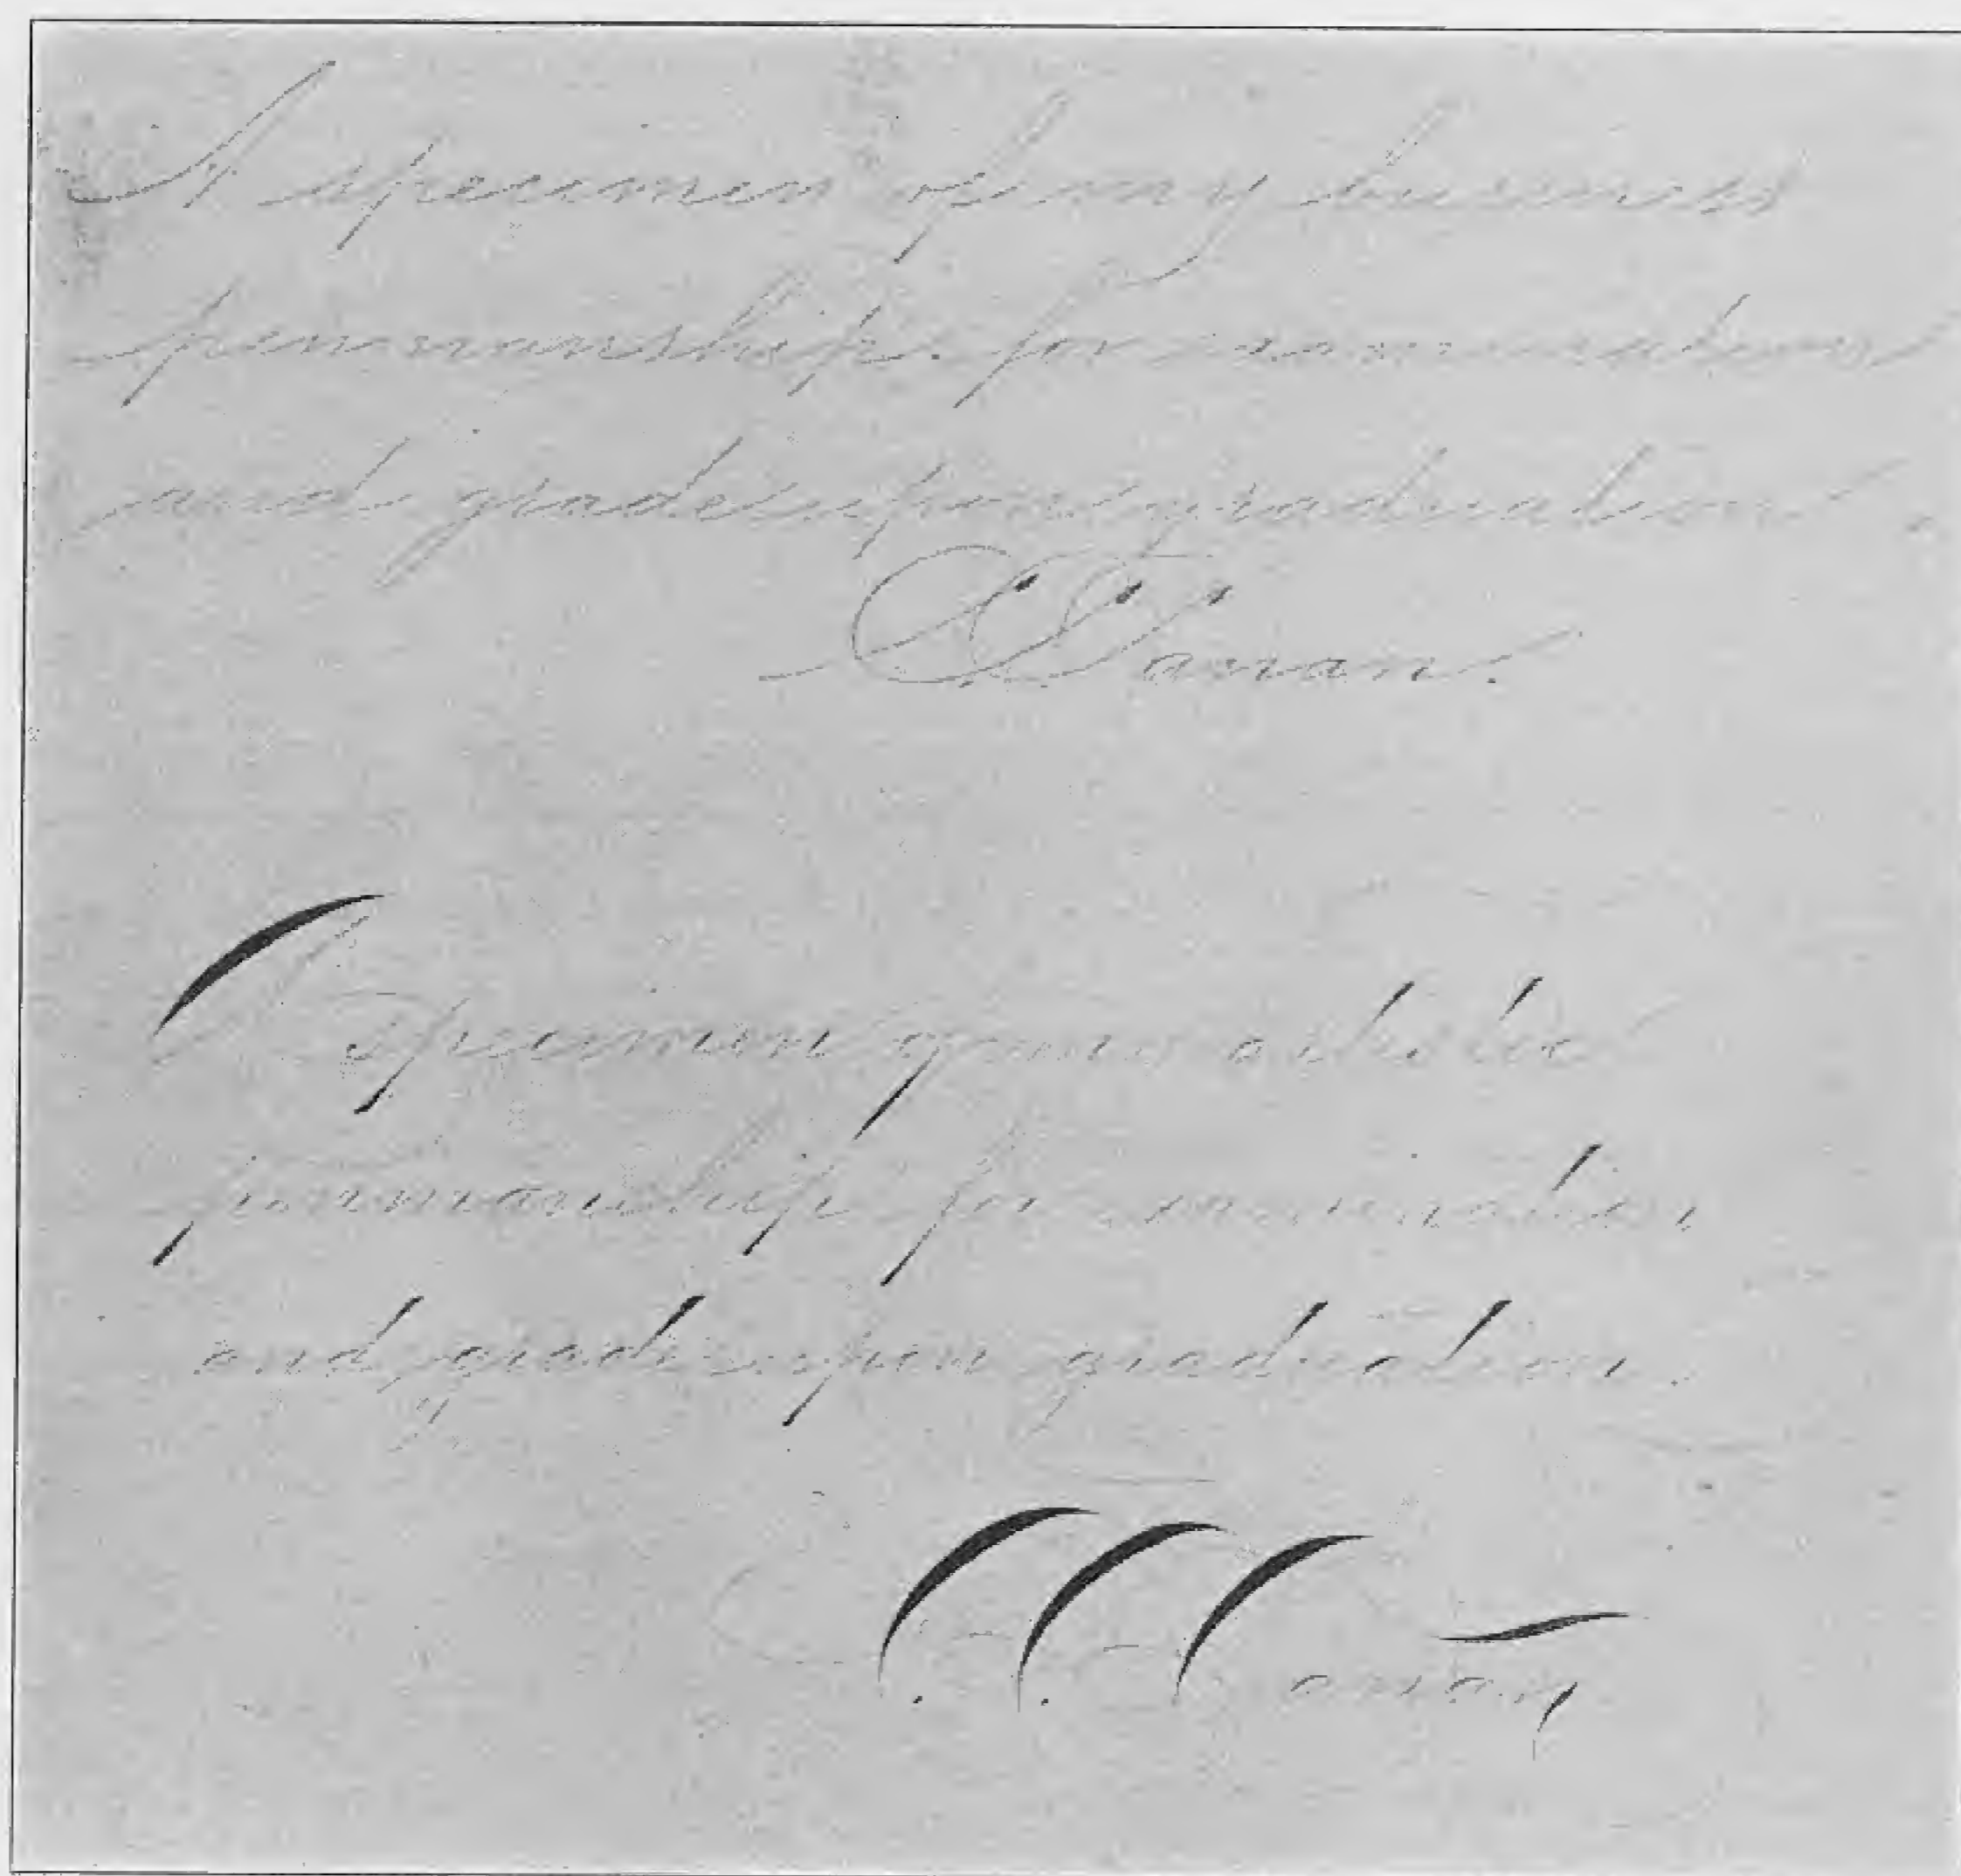 A specimen of my business
penmanship for examination
and grade upon graduation.
A specimen of my artistic
penmanship for examination
and grade upon graduation.